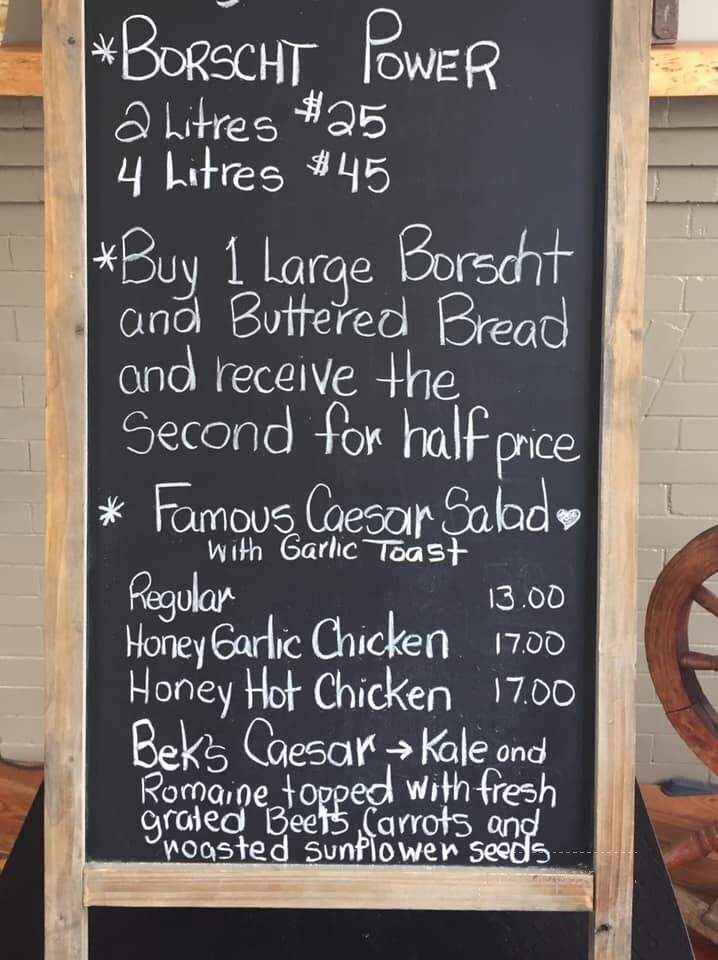 *BORSCHT POWER
2 Litres $25
4 Litres $45
*Buy 1 Large Borscht
and Buttered Bread
and receive the
Second for half price
* Famous Caesar Salad ♥
with Garlic Toast
Regular 13.00
Honey Garlic Chicken 17.00
Honey Hot Chicken 17.00
Bek's Caesar → Kale and
Romaine topped with fresh
grated Beets Carrots and
roasted sunflower seeds